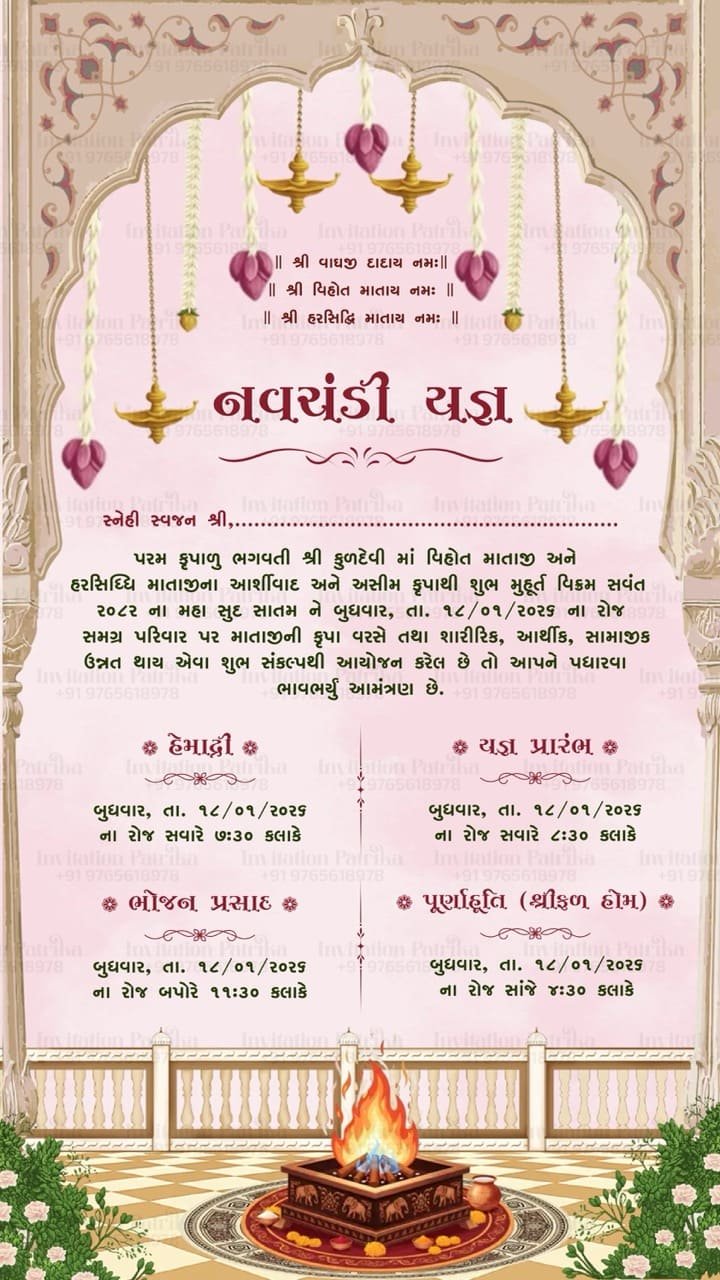 ॥ શ્રી વાઘજી દાદાય નમઃ॥
॥ શ્રી વિહોત માતાય નમઃ ॥
॥ શ્રી હરસિદ્ધિ માતાય નમઃ ॥
નવચંડી યજ્ઞ
સ્નેહી સ્વજન શ્રી,.......................................................
પરમ કૃપાળુ ભગવતી શ્રી કુળદેવી માં વિહોત માતાજી અને
હરસિધ્ધિ માતાજીના આર્શીવાદ અને અસીમ કૃપાથી શુભ મુહૂર્ત વિક્રમ સવંત
૨૦૮૨ ના મહા સુદ સાતમ ને બુધવાર, તા. ૧૮/૦૧/૨૦૨૬ ના રોજ
સમગ્ર પરિવાર પર માતાજીની કૃપા વરસે તથા શારીરિક, આર્થીક, સામાજીક
ઉન્નત થાય એવા શુભ સંકલ્પથી આયોજન કરેલ છે તો આપને પધારવા
ભાવભર્યું આમંત્રણ છે.
હેમાદ્રી
બુધવાર, તા. ૧૮/૦૧/૨૦૨૬
ના રોજ સવારે ૭:૩૦ કલાકે
યજ્ઞ પ્રારંભ
બુધવાર, તા. ૧૮/૦૧/૨૦૨૬
ના રોજ સવારે ૮:૩૦ કલાકે
ભોજન પ્રસાદ
બુધવાર, તા. ૧૮/૦૧/૨૦૨૬
ના રોજ બપોરે ૧૧:૩૦ કલાકે
પૂર્ણાહૂતિ (શ્રીફળ હોમ)
બુધવાર, તા. ૧૮/૦૧/૨૦૨૬
ના રોજ સાંજે ૪:૩૦ કલાકે
Invitation Patrika
+91 9765618978